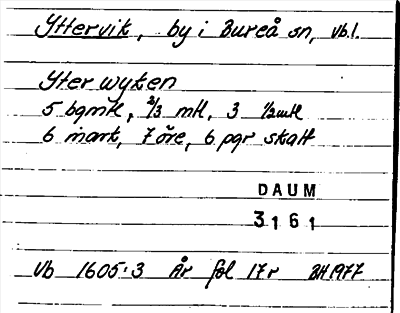 Yttervik, by i Bureå sn, vb l.
Yter wyken
5 bgmtl, 2/3 mtl, 3 1/2 mtl
6 mark, 7 öre, 6 pgr skatt
DAUM
3161
Vb 1605:3 År fol 17r BH 1977